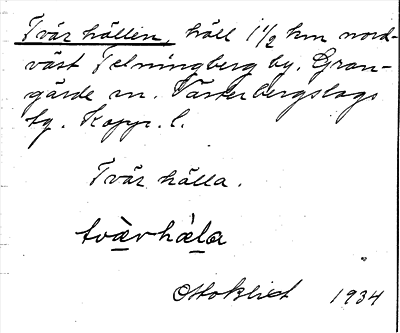 Tvär hällen, häll 1 1/2 km nord-
väst Telningberg by. Gran-
gärde sn. Västerbergslags
tg. Kopp. l.
Tvär hälla.
tvàrhála
Otto Klint 1934